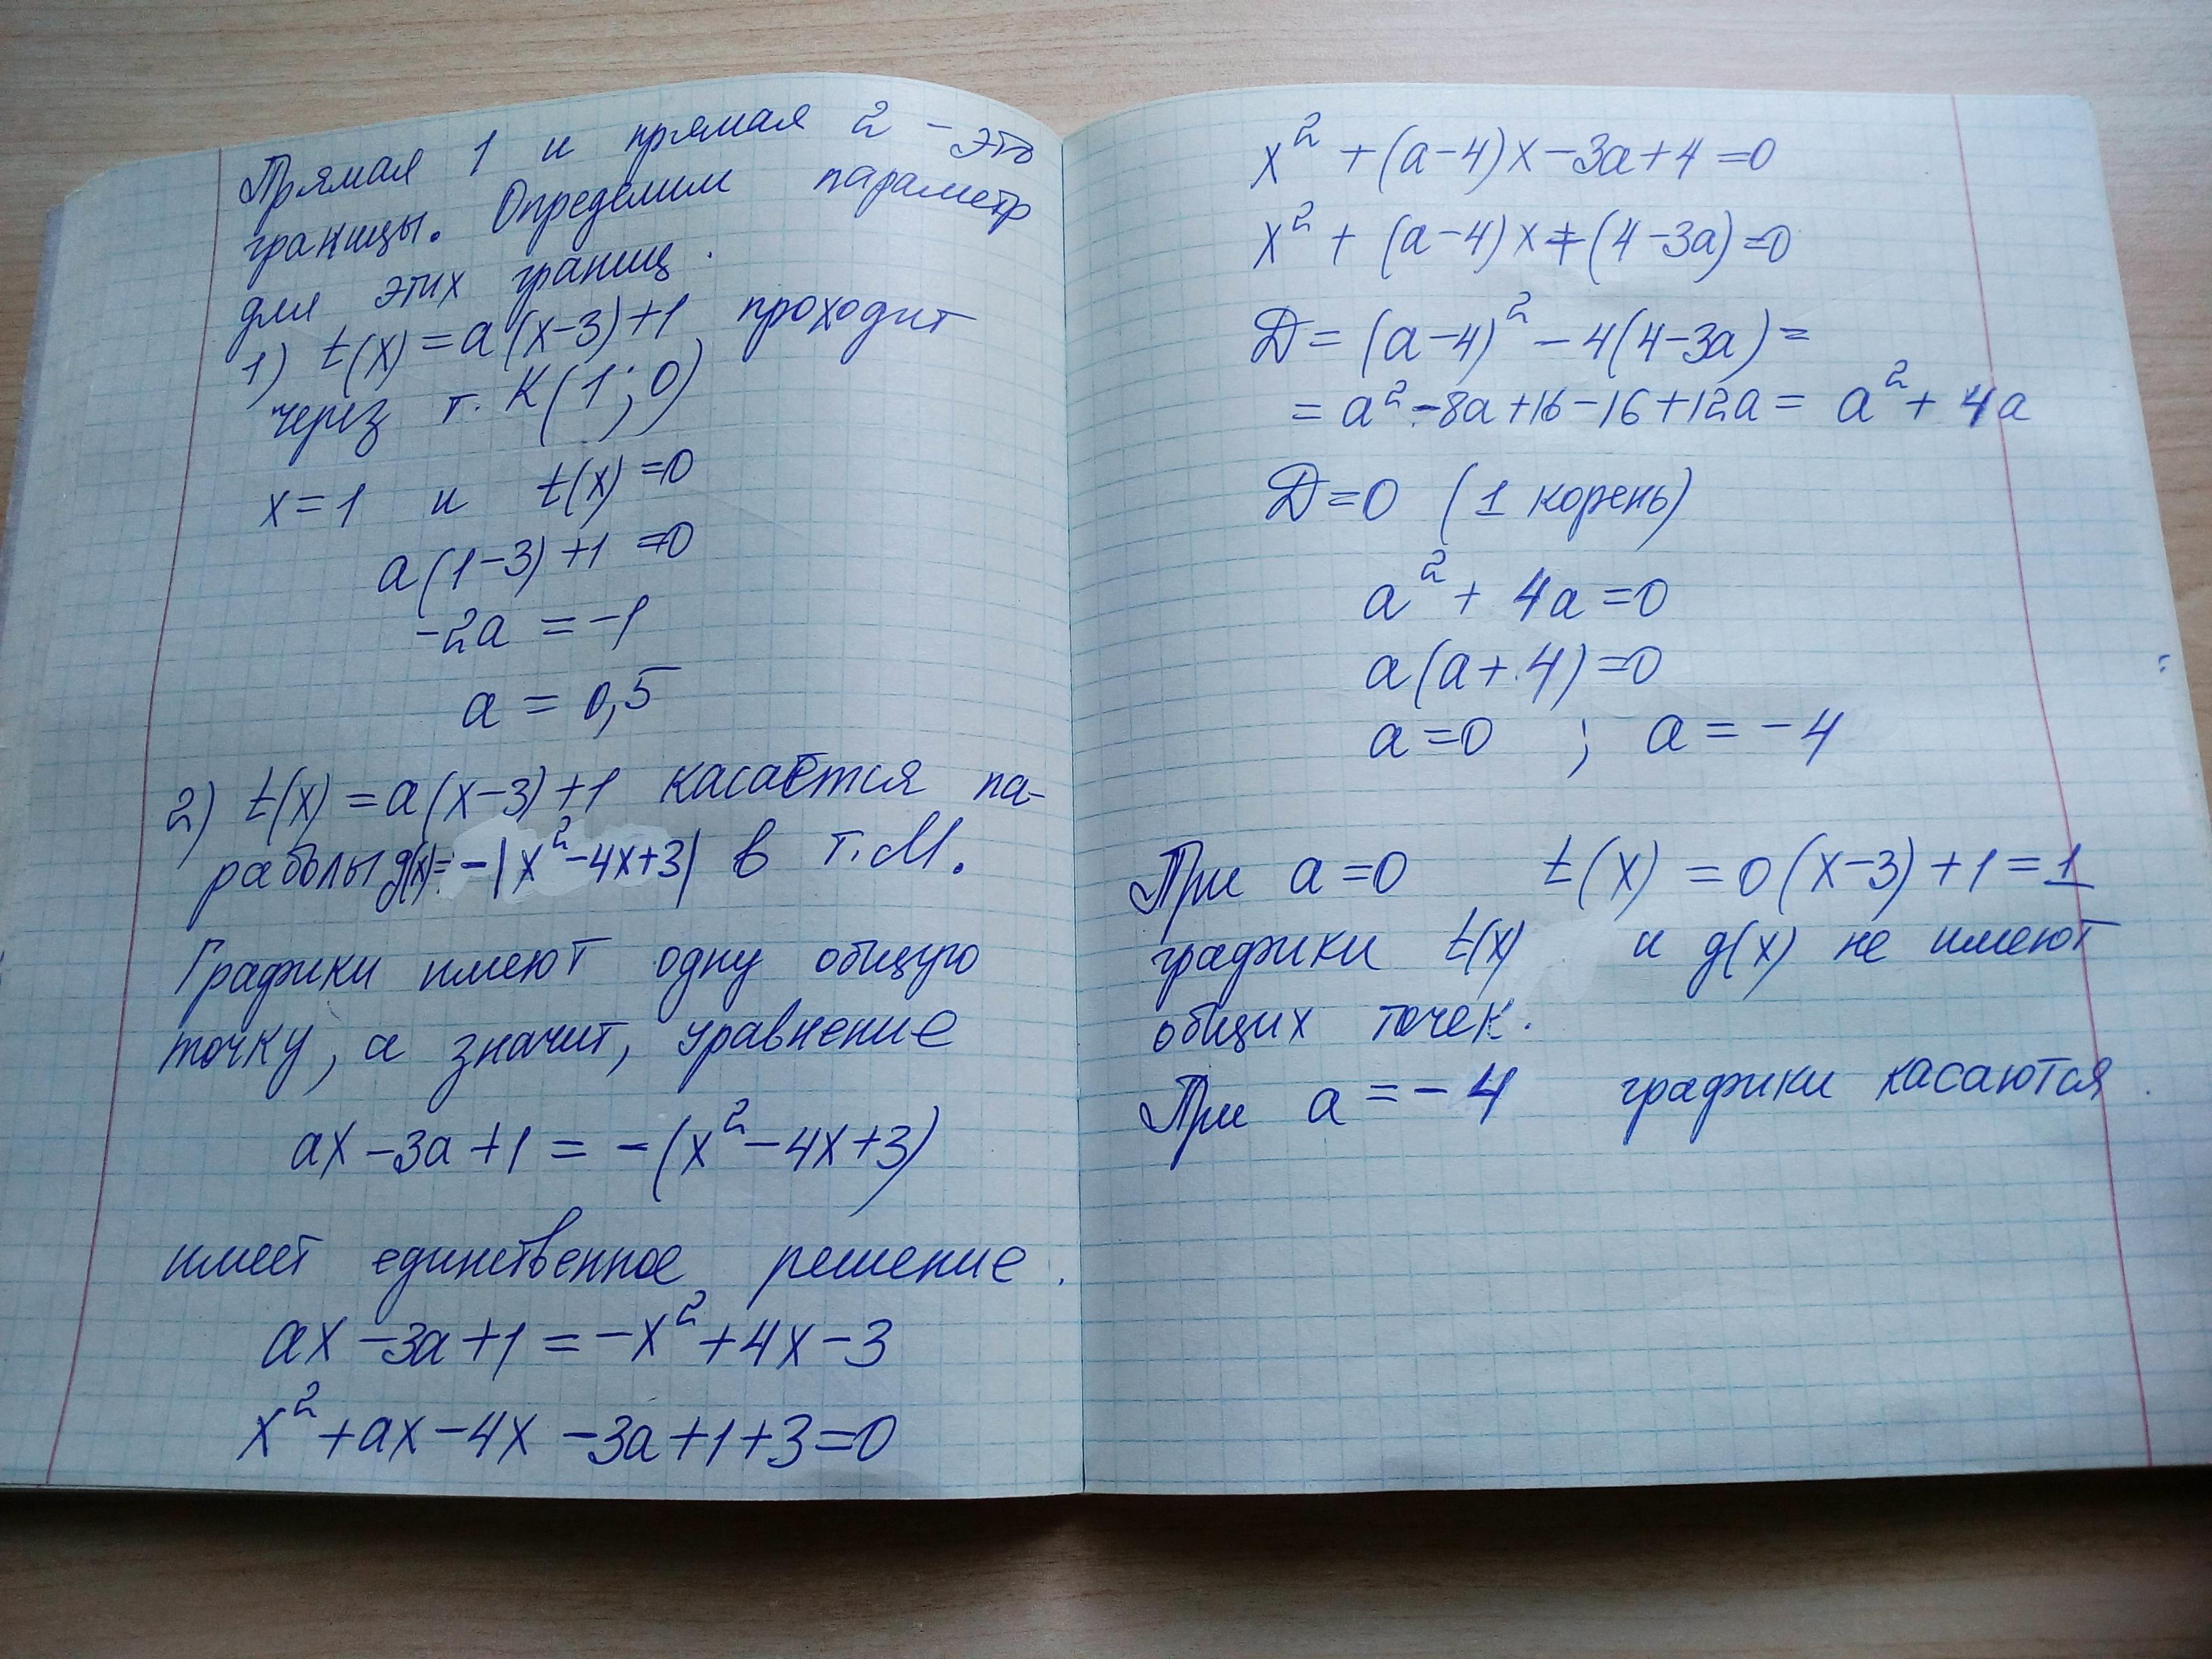 Прямая 1 и прямая 2 - это
границы. Определим параметр
для этих границ.
1) t(x) = a(x-3)+1 проходит
через т. K(1; 0)
x=1 и t(x)=0
a(1-3)+1=0
-2a = -1
a = 0,5
2) t(x) = a(x-3)+1 касается па-
раболы g(x)= -|x²-4x+3| в т. M.
Графики имеют одну общую
точку, а значит, уравнение
ax-3a+1 = -(x²-4x+3)
имеет единственное решение.
ax-3a+1 = -x²+4x-3
x²+ax-4x-3a+1+3=0
x²+(a-4)x-3a+4=0
x²+(a-4)x+(4-3a)=0
D = (a-4)²-4(4-3a) =
= a²-8a+16-16+12a = a²+4a
D=0 (1 корень)
a²+4a=0
a(a+4)=0
a=0 ; a=-4
При a=0 t(x) = 0(x-3)+1=1
графики t(x) и g(x) не имеют
общих точек.
При a=-4 графики касаются.